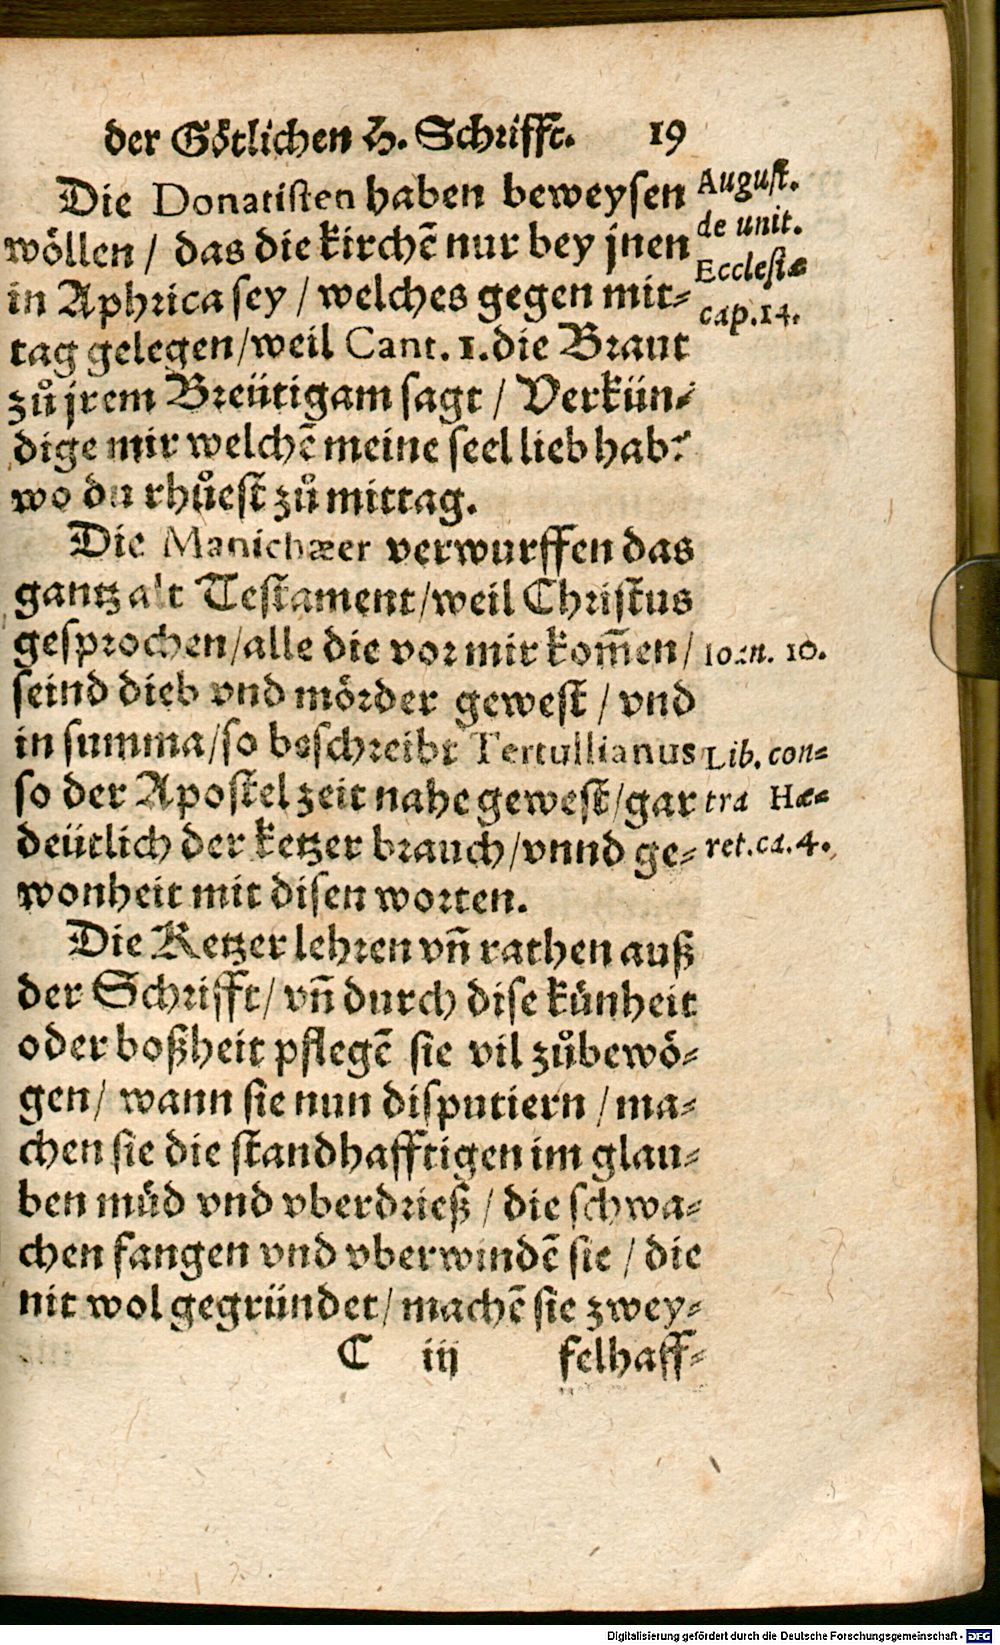 der Götlichen H. Schrifft. 19
Die Donatisten haben beweysen
wöllen / das die kirchẽ nur bey jnen
in Aphrica sey / welches gegen mit-
tag gelegen/weil Cant. 1. die Braut
zů jrem Breütigam sagt / Verkün-
dige mir welchẽ meine seel lieb hab:
wo du rhůest zů mittag.
August.
de unit.
Ecclesiæ
cap.14.
Die Manichæer verwurffen das
gantz alt Testament/weil Christus
gesprochen/alle die vor mir kom̃en/
seind dieb vnd mörder gewest / vnd
in summa/so beschreibt Tertullianus
so der Apostel zeit nahe gewest/gar
deütlich der ketzer brauch/vnnd ge-
wonheit mit disen worten.
Ioan. 10.
Lib. con-
tra Hæ-
ret.ca.4.
Die Ketzer lehren vñ rathen auß
der Schrifft/ vñ durch dise künheit
oder boßheit pflegẽ sie vil zůbewö-
gen/ wann sie nun disputiern / ma-
chen sie die standhafftigen im glau-
ben müd vnd vberdrieß / die schwa-
chen fangen vnd vberwindẽ sie / die
nit wol gegründet/ machẽ sie zwey-
C iij felhaff-
Digitalisierung gefördert durch die Deutsche Forschungsgemeinschaft - DFG